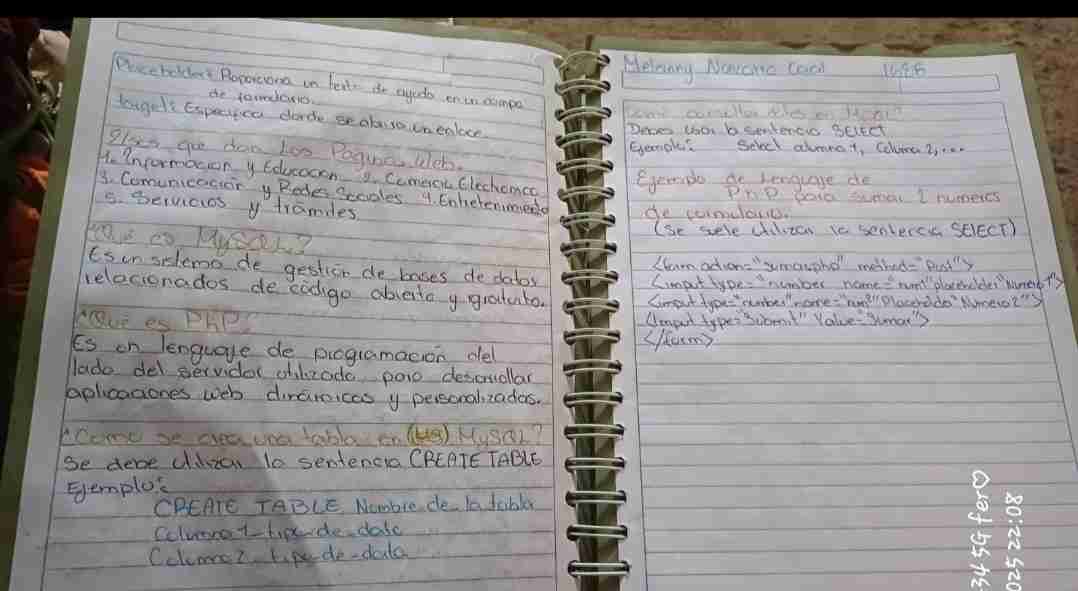 Placeholder: Proporciona un texto de ayuda en un campo
de formulario.
target: Especifica donde se abrira un enlace
que dan Los Paginas Web.
1. Informacion y Educacion 2. Comercio Electronico
3. Comunicación y Redes Sociales 4. Entretenimiento
5. Servicios y tramites
¿Qué es MySQL?
Es un sistema de gestión de bases de datos
relacionados de código abierto y gratuito.
¿Qué es PhP?
Es un lenguaje de programación del
lado del servidor utilizado para desarrollar
aplicaciones web dinámicas y personalizadas.
¿Como se crea una tabla en MySQL?
Se debe utilizar la sentencia CREATE TABLE
Ejemplo:
CREATE TABLE Nombre de la tabla
Columna 1 tipo-de-dato
Columna 2 tipo-de-data
Melanny 1686
Debes usar la sentencia SELECT
Ejemplo: Select columna 1, Columa 2, ...
Ejemplo de Lenguaje de
PhP para sumar 2 numeros
de formulario.
(se suele utilizar la sentencia SELECT)
<form action="sumar.php" method="Post">
<imput type="number name="num1" placeholder "Numero 1">
<imput type="number" name="num2" Placeholder "Numero 2">
<Imput type="Submit" Value="Sumar">
</form>
34 5G fer♡
025 22:08